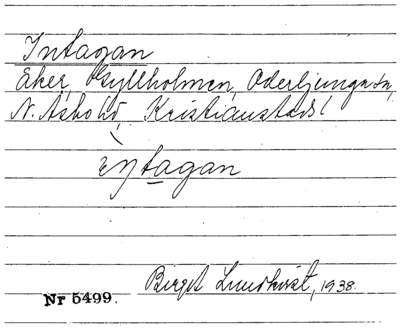 Intagan
Åker, Gyllholmen, Oderljunga sn,
N. Åsbo hd, Kristianstads l
ìntagan
Birget Lundkvist, 1938.
Nr 5499.